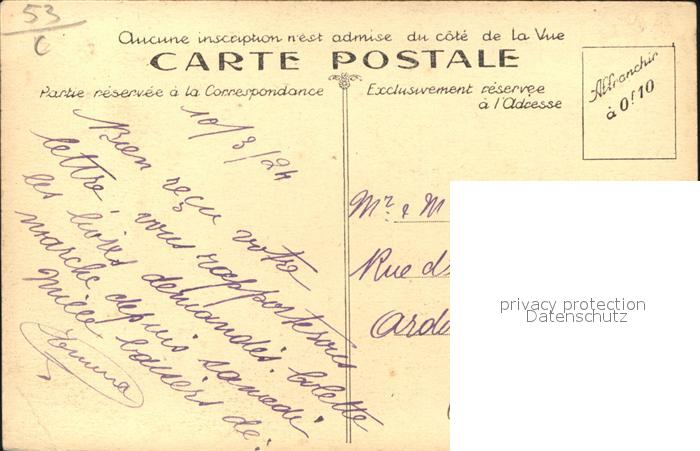 53
C
Aucune inscription n'est admise du côté de la Vue
CARTE POSTALE
Partie réservée à la Correspondance
Exclusivement réservée
à l'Adresse
Affranchir
à 0f10
10/3/24
Bien reçu votre
lettre, vous rapporterons
les livres demandés. Colette
marche depuis samedi
mille baisers de:
Mr & M
Rue d
Ard
privacy protection
Datenschutz